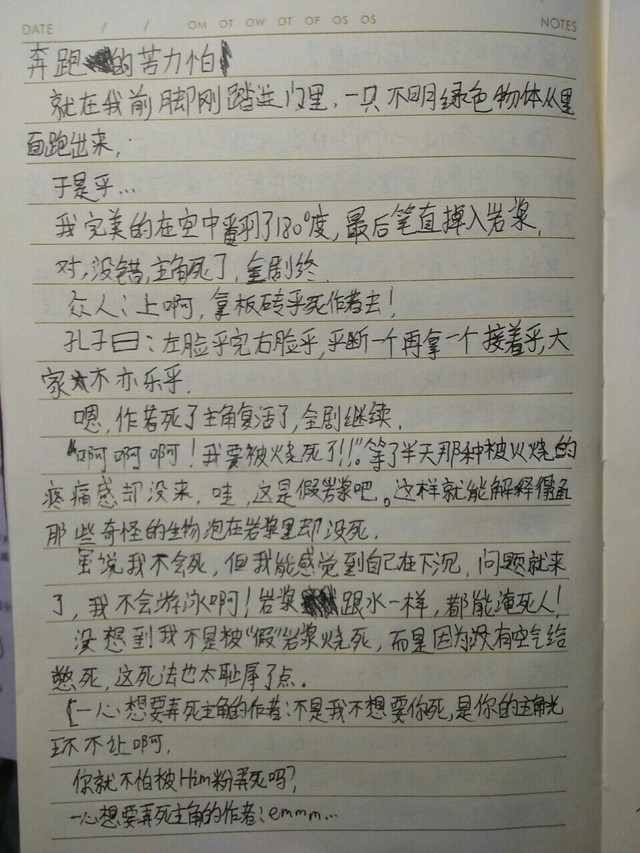 DATE / / OM OT OW OT OF OS OS NOTES
奔跑的苦力怕
就在我前脚刚踏进门里，一只不明绿色物体从里
面跑出来，
于是乎…
我完美的在空中翻了180°度，最后笔直掉入岩浆，
对，没错，主角死了，全剧终．
众人：上啊，拿板砖乎死作者去！
孔子曰：左脸乎完右脸乎，乎断一个再拿一个接着乎，大
家 不亦乐乎．
嗯，作者死了主角复活了，全剧继续．
“啊啊啊！我要被火烧死了！！”。等了半天那种被火烧的
疼痛感却没来，哇，这是假岩浆吧。这样就能解释得通
那些奇怪的生物泡在岩浆里却没死．
虽说我不会死，但我能感觉到自己在下沉，问题就来
了，我不会游泳啊！岩浆跟水一样，都能淹死人！
没想到我不是被“假”岩浆烧死，而是因为没有空气给
憋死，这死法也太耻辱了点．
{一心想要弄死主角的作者：不是我不想要你死，是你的主角光
环不让啊，
你就不怕被Him粉弄死吗？
一心想要弄死主角的作者：emmm…